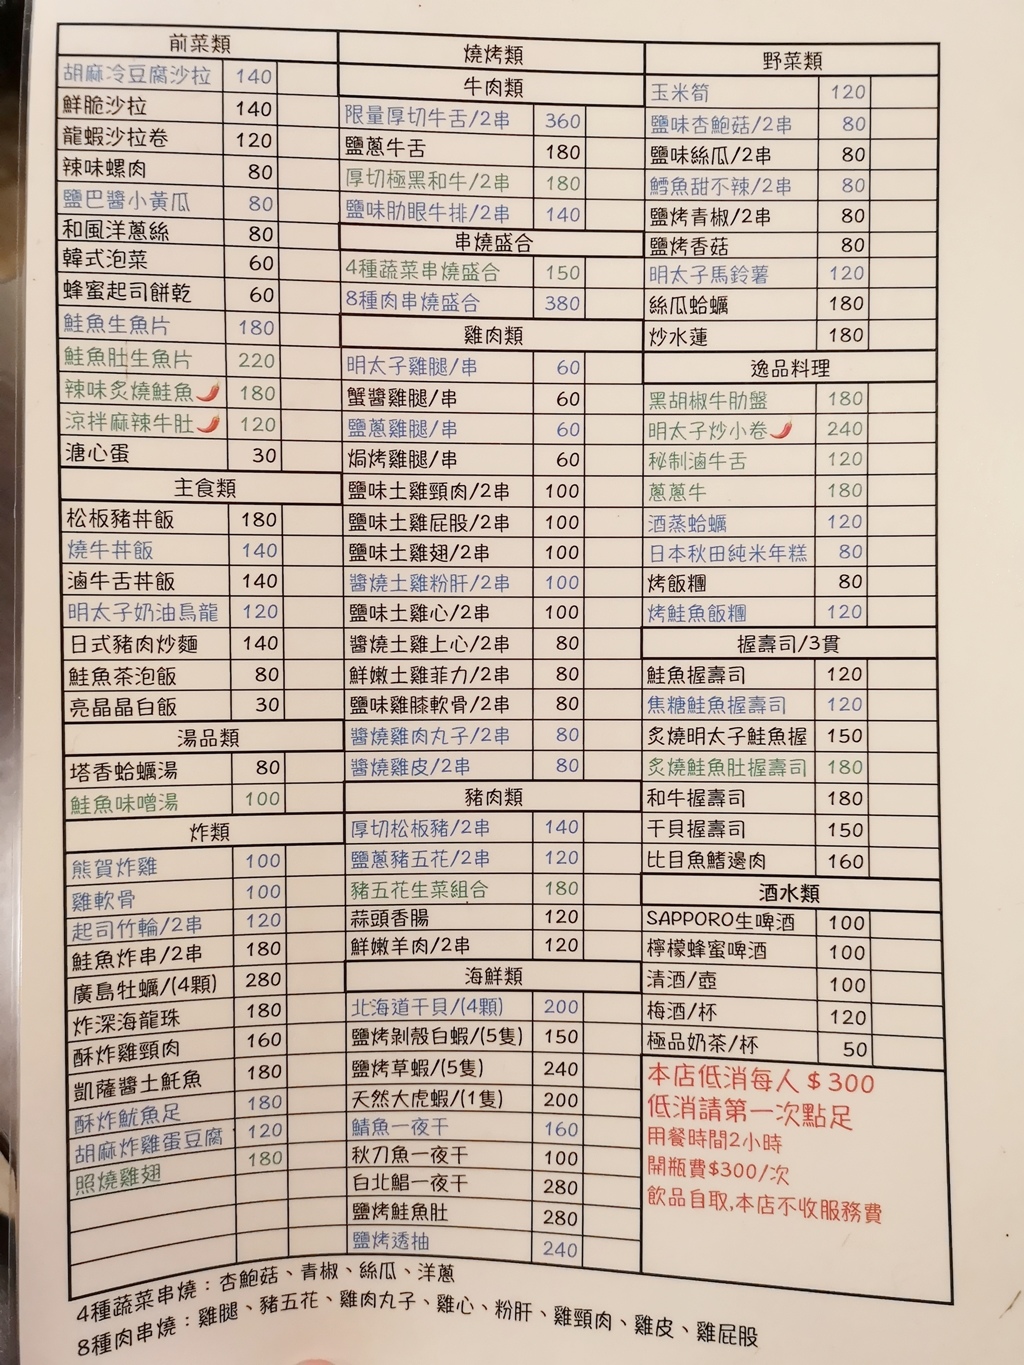 前菜類
胡麻冷豆腐沙拉 140
鮮脆沙拉 140
龍蝦沙拉卷 120
辣味螺肉 80
鹽巴醬小黃瓜 80
和風洋蔥絲 80
韓式泡菜 60
蜂蜜起司餅乾 60
鮭魚生魚片 180
鮭魚肚生魚片 220
辣味炙燒鮭魚 180
涼拌麻辣牛肚 120
溏心蛋 30
主食類
松板豬丼飯 180
燒牛丼飯 140
滷牛舌丼飯 140
明太子奶油烏龍 120
日式豬肉炒麵 140
鮭魚茶泡飯 80
亮晶晶白飯 30
湯品類
塔香蛤蠣湯 80
鮭魚味噌湯 100
炸類
熊賀炸雞 100
雞軟骨 100
起司竹輪/2串 120
鮭魚炸串/2串 180
廣島牡蠣/(4顆) 280
炸深海龍珠 180
酥炸雞頸肉 160
凱薩醬土魠魚 180
酥炸魷魚足 180
胡麻炸雞蛋豆腐 120
照燒雞翅 180
燒烤類
牛肉類
限量厚切牛舌/2串 360
鹽蔥牛舌 180
厚切極黑和牛/2串 180
鹽味肋眼牛排/2串 140
串燒盛合
4種蔬菜串燒盛合 150
8種肉串燒盛合 380
雞肉類
明太子雞腿/串 60
蟹醬雞腿/串 60
鹽蔥雞腿/串 60
焗烤雞腿/串 60
鹽味土雞頸肉/2串 100
鹽味土雞屁股/2串 100
鹽味土雞翅/2串 100
醬燒土雞粉肝/2串 100
鹽味土雞心/2串 100
醬燒土雞上心/2串 80
鮮嫩土雞菲力/2串 80
鹽味雞膝軟骨/2串 80
醬燒雞肉丸子/2串 80
醬燒雞皮/2串 80
豬肉類
厚切松板豬/2串 140
鹽蔥豬五花/2串 120
豬五花生菜組合 180
蒜頭香腸 120
鮮嫩羊肉/2串 120
海鮮類
北海道干貝/(4顆) 200
鹽烤剝殼白蝦/(5隻) 150
鹽烤草蝦/(5隻) 240
天然大虎蝦/(1隻) 200
鯖魚一夜干 160
秋刀魚一夜干 100
白北鯧一夜干 280
鹽烤鮭魚肚 280
鹽烤透抽 240
野菜類
玉米筍 120
鹽味杏鮑菇/2串 80
鹽味絲瓜/2串 80
鱈魚甜不辣/2串 80
鹽烤青椒/2串 80
鹽烤香菇 80
明太子馬鈴薯 120
絲瓜蛤蠣 180
炒水蓮 180
逸品料理
黑胡椒牛肋盤 180
明太子炒小卷 240
秘制滷牛舌 120
蔥蔥牛 180
酒蒸蛤蠣 120
日本秋田純米年糕 80
烤飯糰 80
烤鮭魚飯糰 120
握壽司/3貫
鮭魚握壽司 120
焦糖鮭魚握壽司 120
炙燒明太子鮭魚握 150
炙燒鮭魚肚握壽司 180
和牛握壽司 180
干貝握壽司 150
比目魚鰭邊肉 160
酒水類
SAPPORO生啤酒 100
檸檬蜂蜜啤酒 100
清酒/壺 100
梅酒/杯 120
極品奶茶/杯 50
本店低消每人$300
低消請第一次點足
用餐時間2小時
開瓶費$300/次
飲品自取,本店不收服務費
4種蔬菜串燒：杏鮑菇、青椒、絲瓜、洋蔥
8種肉串燒：雞腿、豬五花、雞肉丸子、雞心、粉肝、雞頸肉、雞皮、雞屁股